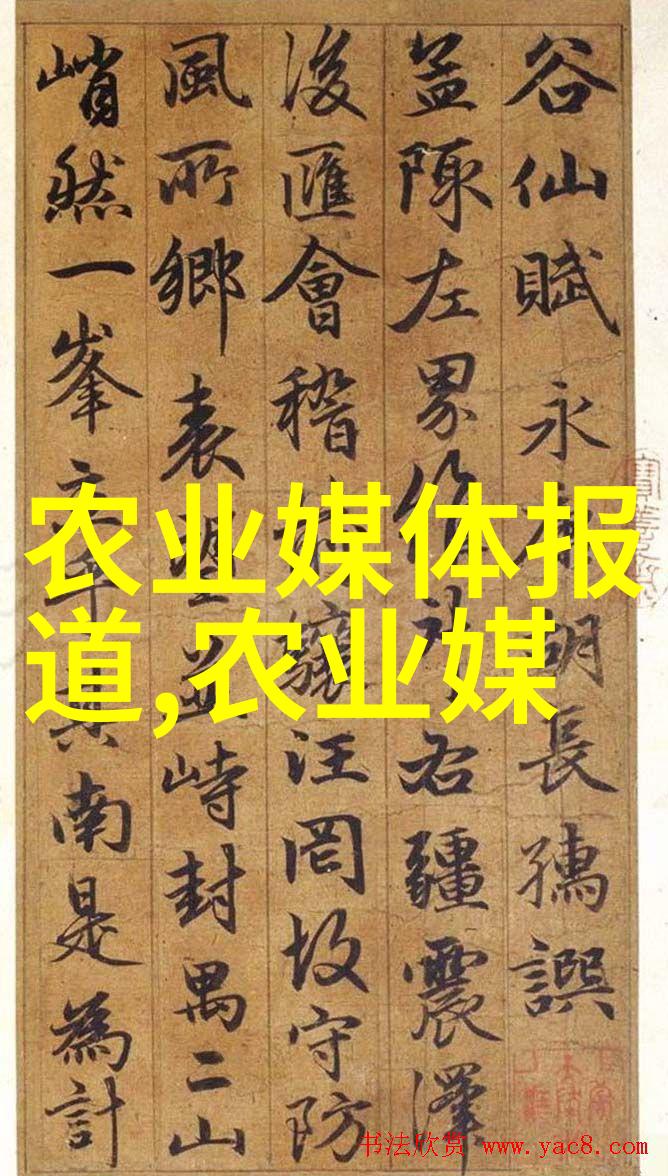 谷仙賦 永康胡長孺譔
盖陳左界右疆震澤
後匯會稽汪罔故守防
風所鄉表並峙封禺二山
峭然一峯立乎其南是為計
农业媒体报
道,农业媒
书法欣赏 www.yac8.com